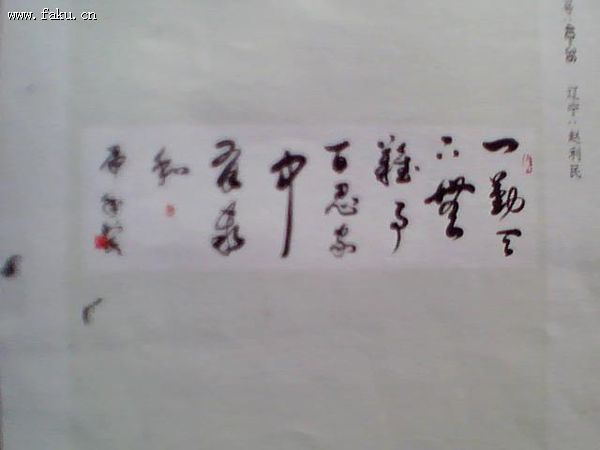 www.faku.cn
辽宁：赵利民
一勤天
下無
難事
百忍家
中
有泰
和